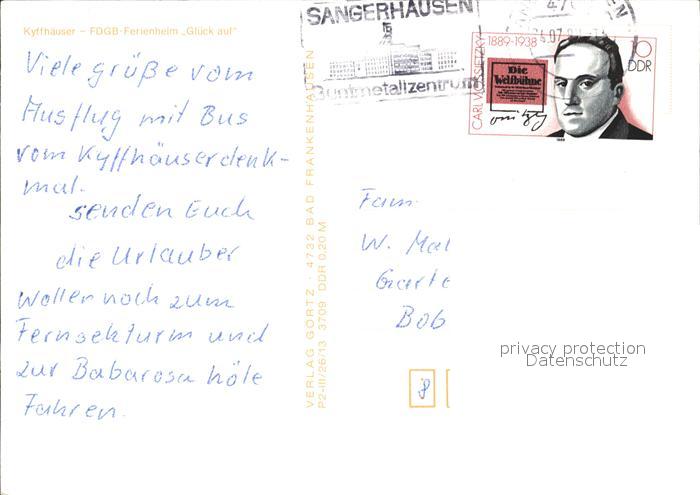 Kyffhäuser – FDGB-Ferienheim „Glück auf"
Viele grüße vom
Ausflug mit Bus
vom Kyffhäuserdenk-
mal.
senden Euch
die Urlauber
Woller noch zum
Fernsehturm und
zur Babarosa höle
Fahren.
VERLAG GÖRTZ · 4732 BAD FRANKENHAUSEN
P2-III/26/13 3709 DDR 0,20 M
SANGERHAUSEN
Buntmetallzentrum
CARL V. OSSIETZKY
1889-1938
Die
Weltbühne
10
DDR
Fam.
W. Mal
Garte
Bob
8
privacy protection
Datenschutz